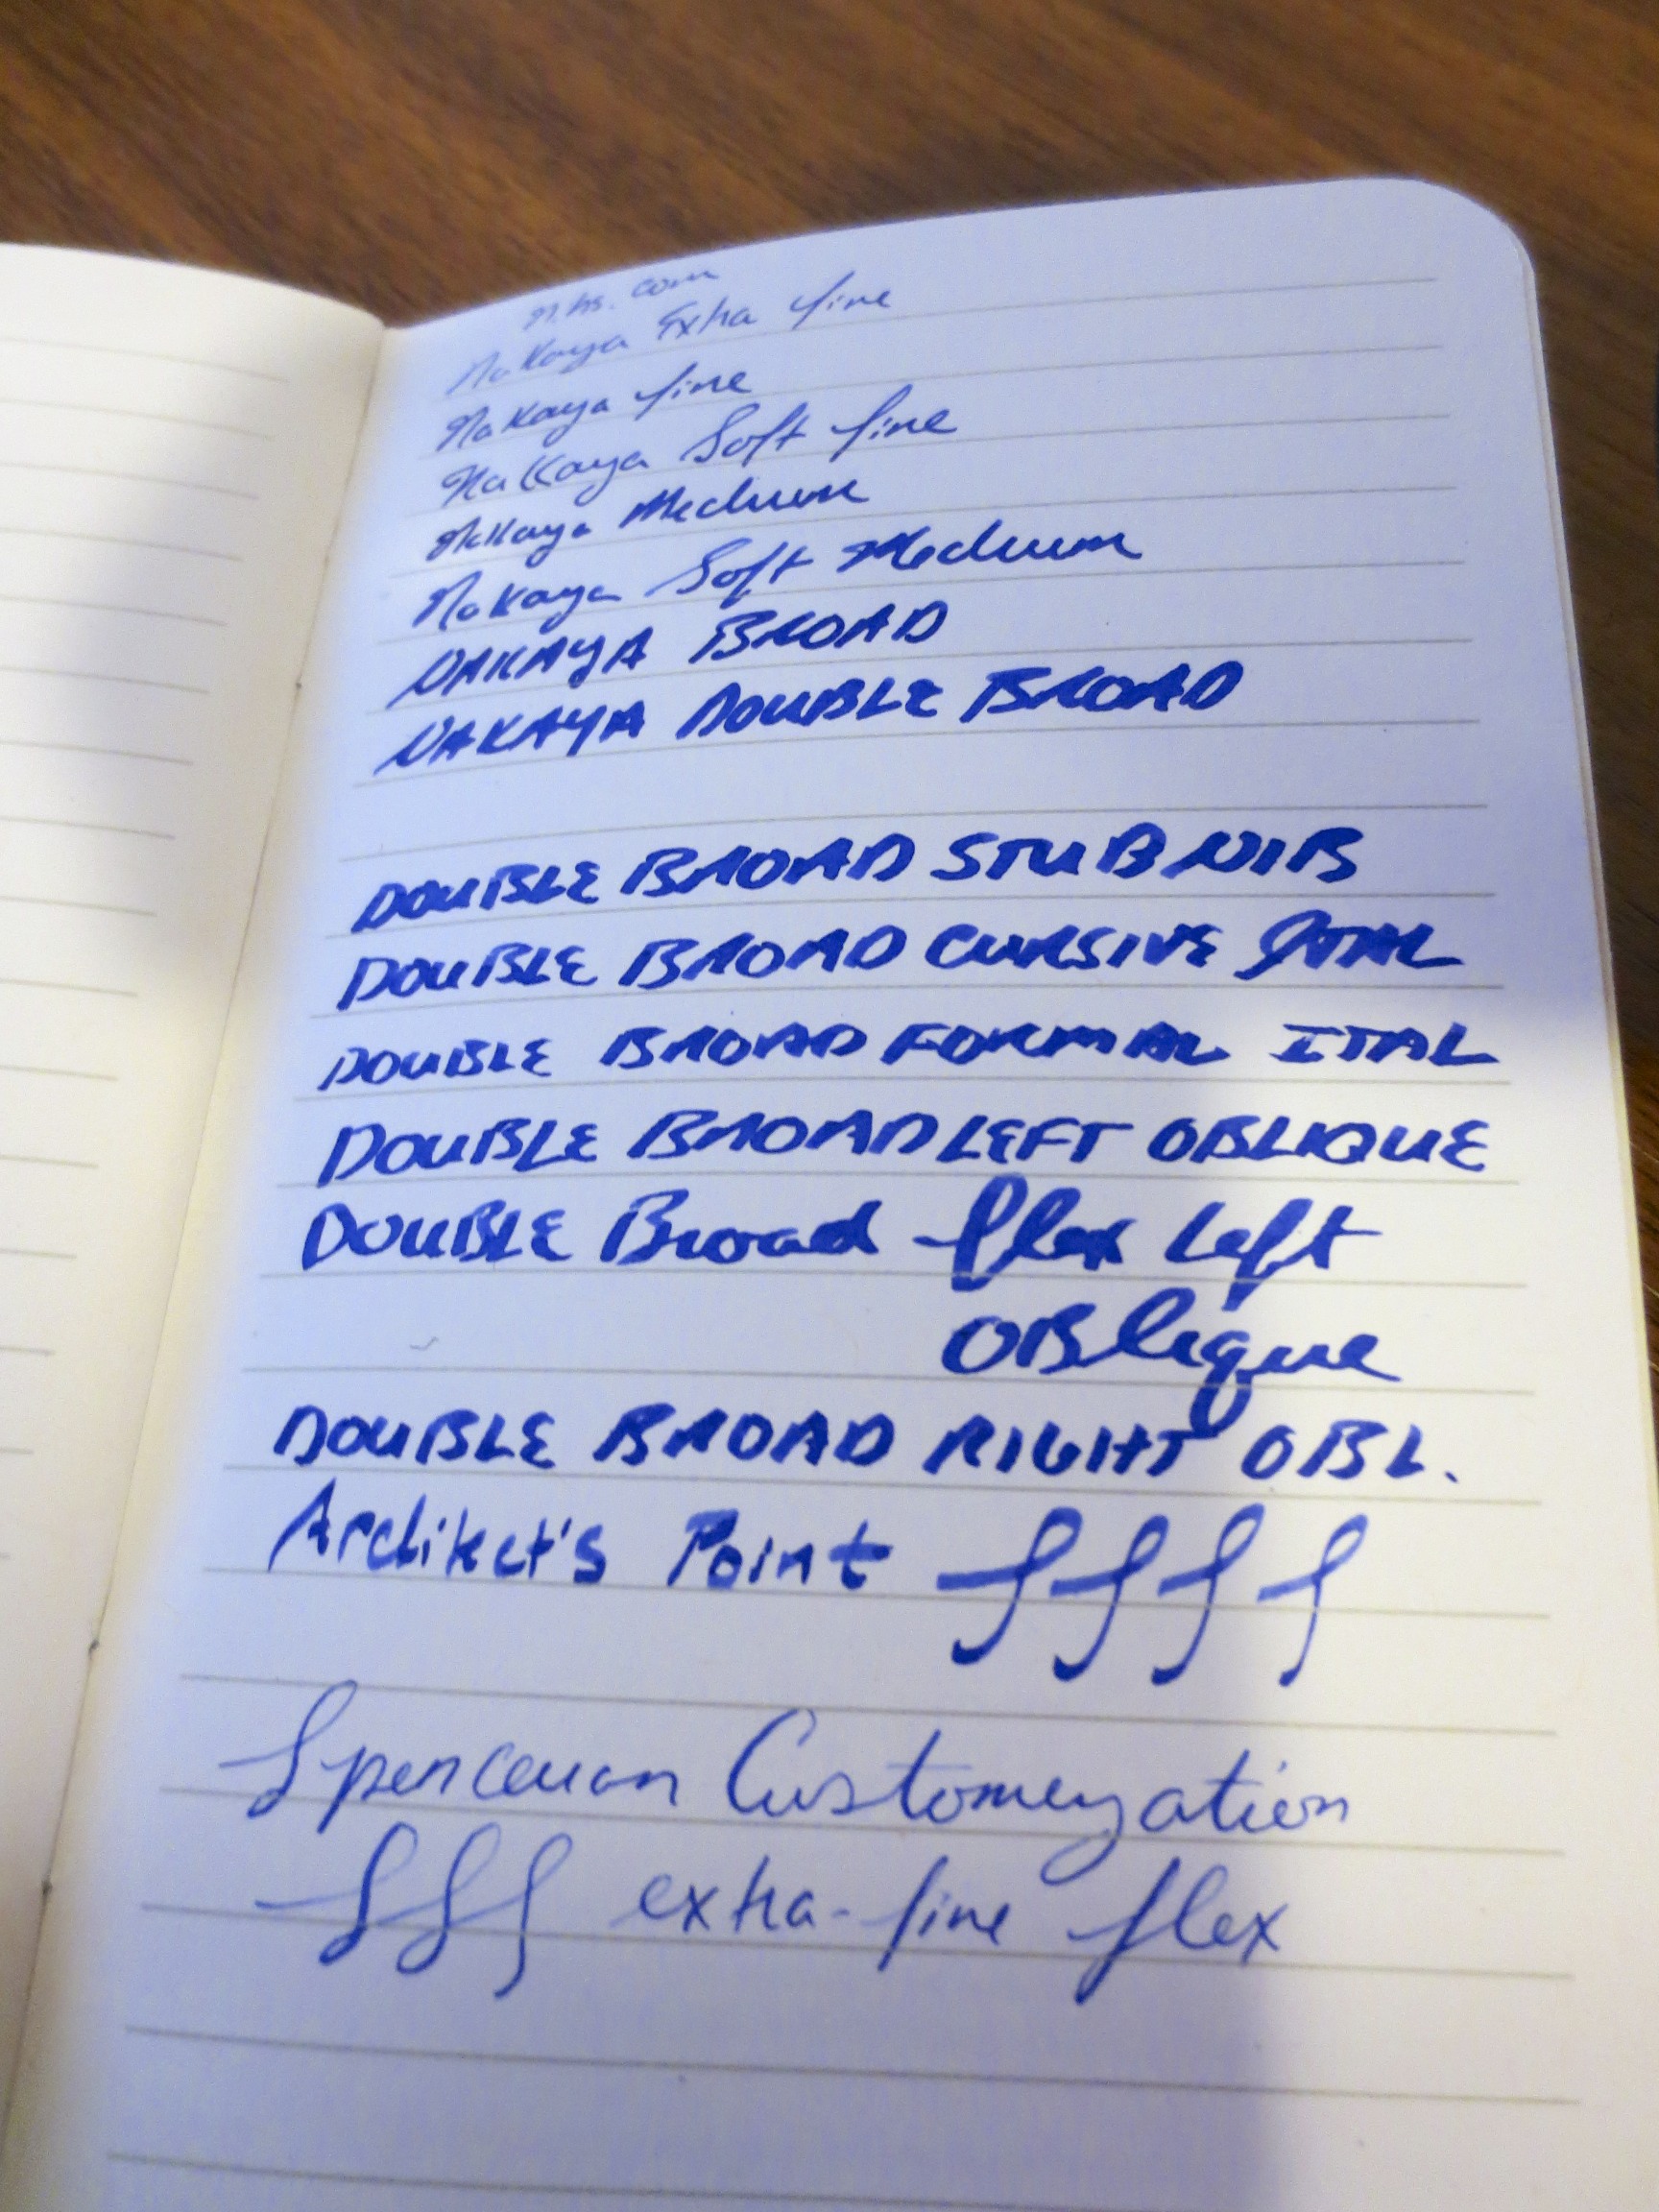 Nakaya Extra fine
Nakaya fine
Nakaya Soft fine
Nakaya Medium
Nakaya Soft Medium
NAKAYA BROAD
NAKAYA DOUBLE BROAD
DOUBLE BROAD STUB NIB
DOUBLE BROAD CURSIVE ITAL
DOUBLE BROAD FORMAL ITAL
DOUBLE BROAD LEFT OBLIQUE
DOUBLE Broad flex Left
OBlique
DOUBLE BROAD RIGHT OBL.
Architect's Point ffff
Spencerian Customization
fff extra-fine flex